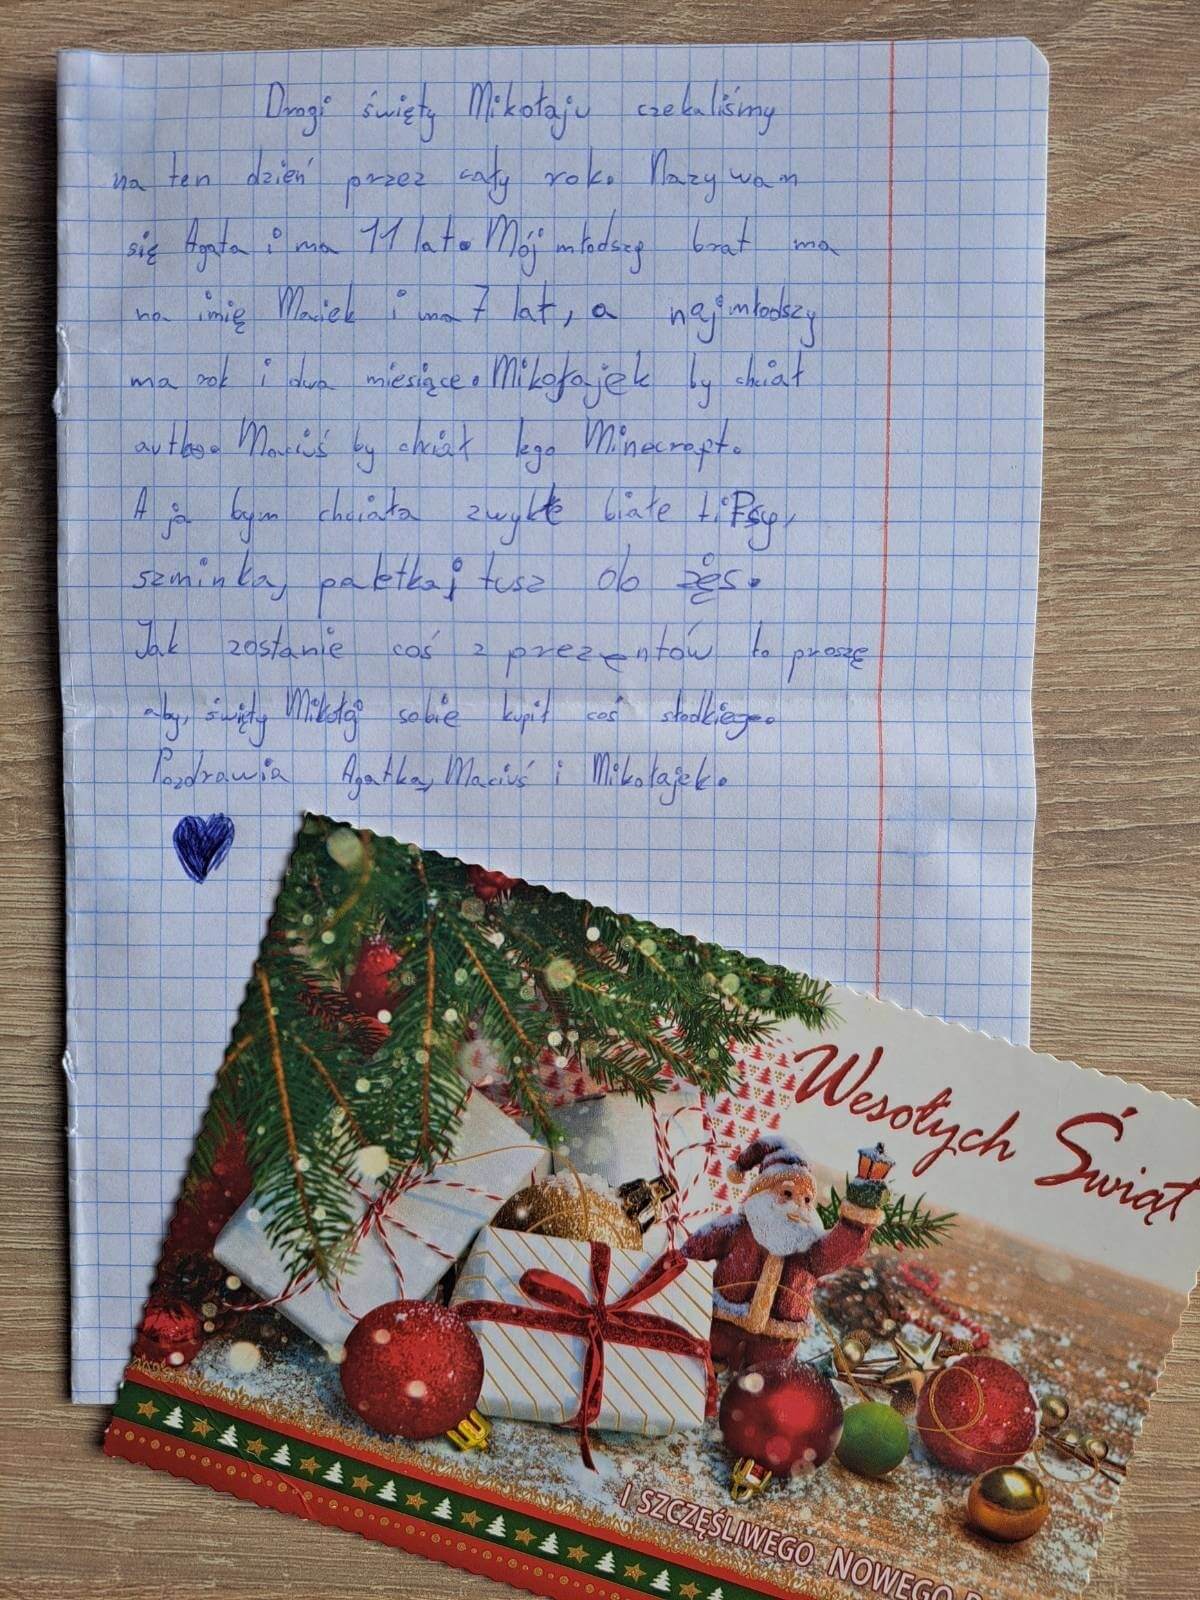 Drogi święty Mikołaju czekaliśmy
na ten dzień przez cały rok. Nazywam
się Agata i ma 11 lat. Mój młodszy brat ma
na imię Maciek i ma 7 lat, a najmłodszy
ma rok i dwa miesiące. Mikołajek by chciał
autko. Maciuś by chciał lego Minecraft.
A ja bym chciała zwykłe białe tiPsy,
szminka, paletka, tusz do żęs.
Jak zostanie coś z prezentów to proszę
aby, święty Mikołaj sobie kupił coś słodkiego.
Pozdrawia Agatka, Maciuś i Mikołajek.
Wesołych Świąt
I SZCZĘŚLIWEGO NOWEGO R